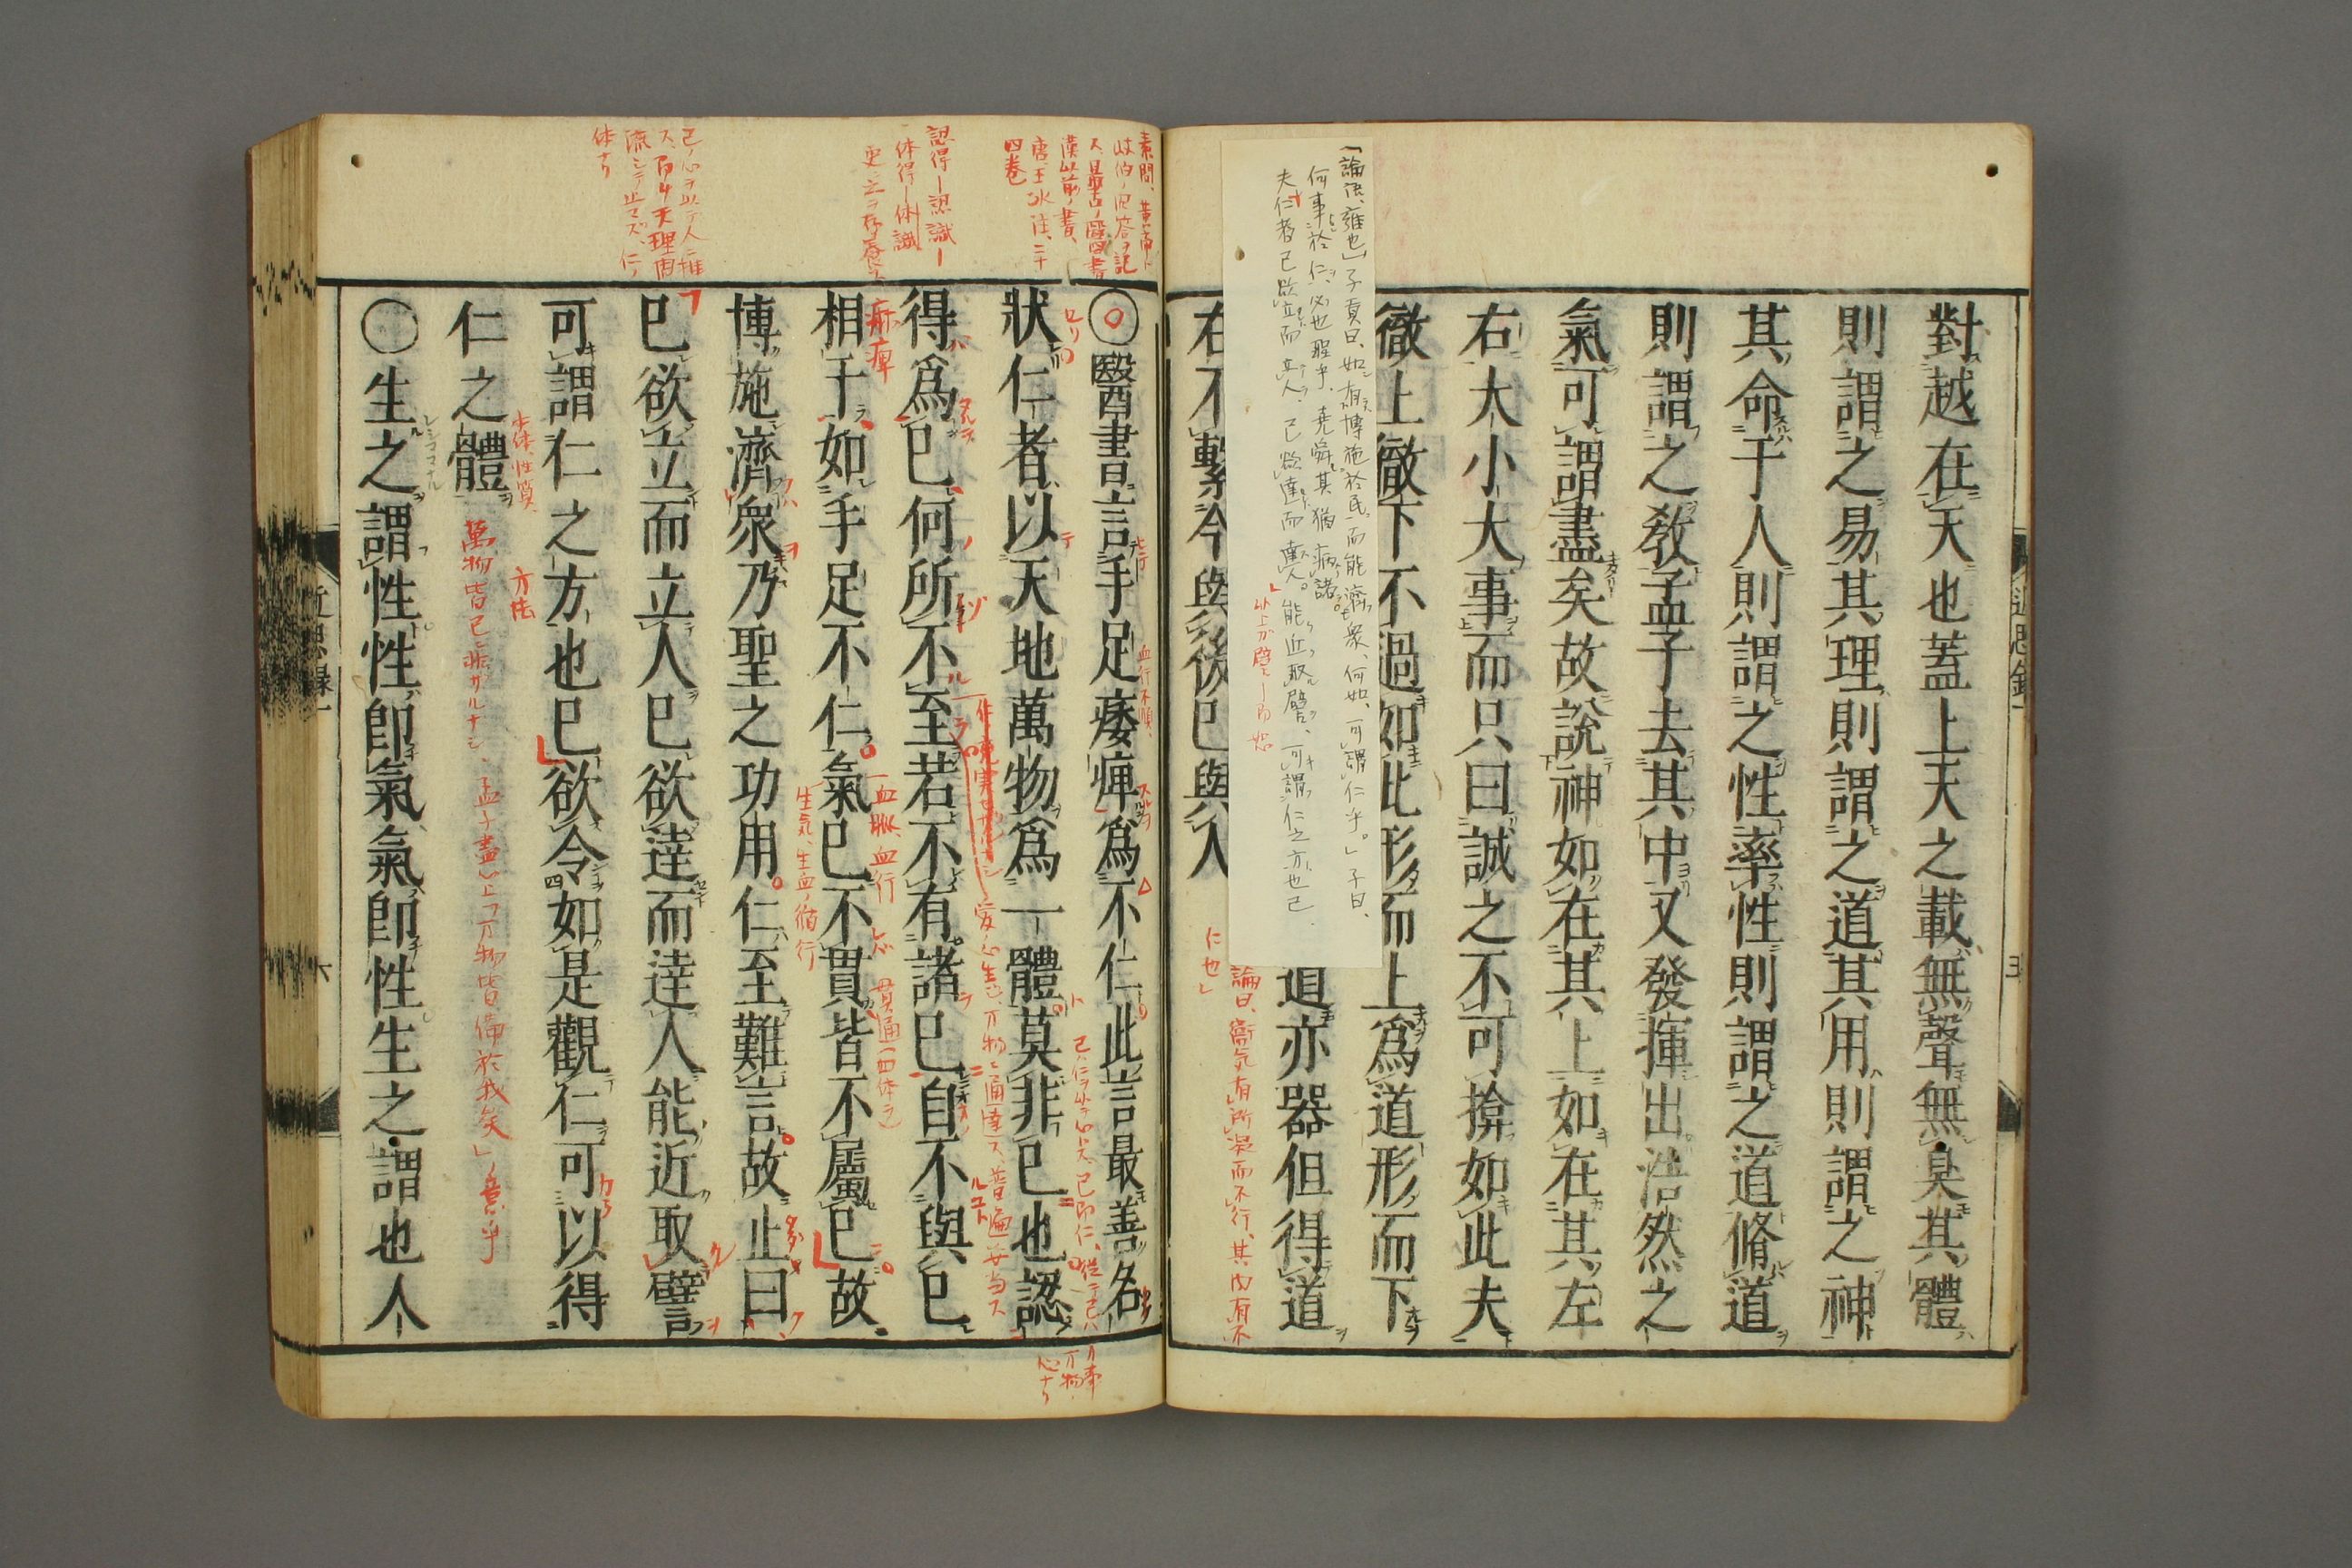 對越在天也蓋上天之載無聲無臭其體
則謂之易其理則謂之道其用則謂之神
其命于人則謂之性率性則謂之道脩道
則謂之敎孟子去其中又發揮出浩然之
氣可謂盡矣故說神如在其上如在其左
右大小大事而只曰誠之不可揜如此夫
徹上徹下不過如此形而上爲道形而下
道亦器但得道
右不繫今與後已與人
「論語、雍也」子貢曰、如有博施於民而能濟衆、何如、可謂仁乎。」子曰、
何事於仁、必也聖乎、堯舜其猶病諸。
夫仁者己欲立而立人、己欲達而達人。能近取譬、可謂仁之方也已
論曰、
仁也」
近思録
五
〇醫書言手足痿痺爲不仁此言最善名
狀仁者以天地萬物爲一體莫非已也認
得爲已何所不至若不有諸已自不與已
相干如手足不仁氣已不貫皆不屬已故
博施濟衆乃聖之功用仁至難言故止曰
已欲立而立人已欲達而達人能近取譬
可謂仁之方也已欲令如是觀仁可以得
仁之體
〇生之謂性性即氣氣即性生之謂也人
近思録一
六
漢以前ノ書、
唐、王冰注、二十
四巻
認得ー認識ー
体得ー体識
体ナリ
痲痺
血行不順
血脈、血行
生気、生血ノ循行
本体、性質
方法
萬物皆己ニ非ザルナシ、孟子盡心上「万物皆備於我矣」ノ意乎